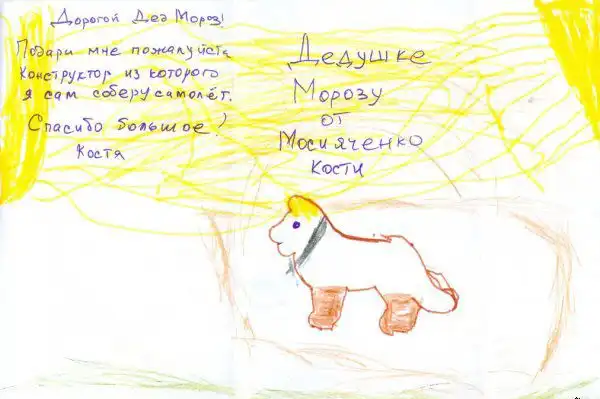 Дорогой Дед Мороз!
Подари мне пожалуйста
Конструктор из которого
я сам соберу самолёт.
Спасибо большое!
Костя
Дедушке
Морозу
от
Мосияченко
Кости